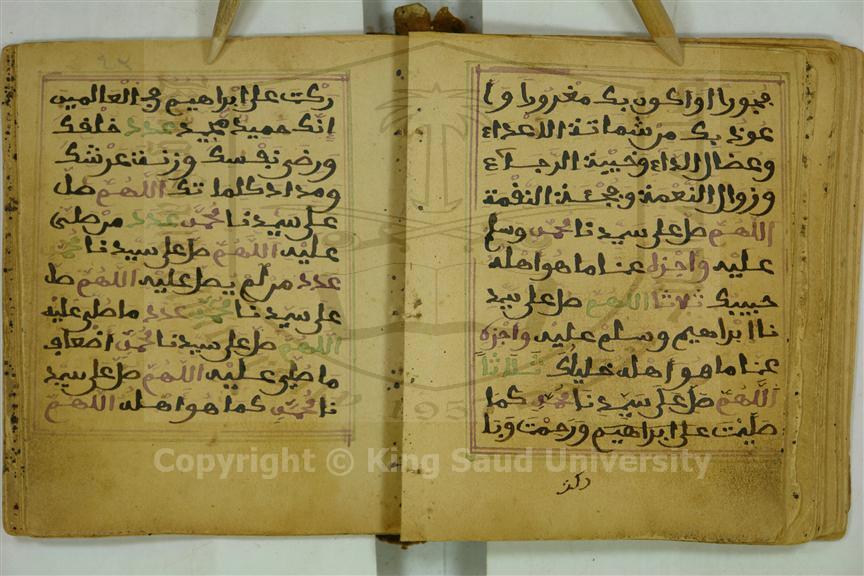 فجورا او اكون بك مغرورا وا
عوذ بك من شماتة الاعداء
وعضال الداء وخيبة الرجاء
وزوال النعمة وفجئة النقمة
اللهم صل على سيدنا محمد وسلم
عليه واجزه عنا ما هو اهله
حبيبك ثلاثا اللهم صل على سيد
نا ابراهيم وسلم عليه واجزه
عنا ما هو اهله خليلك ثلاثا
اللهم صل على سيدنا محمد كما
صليت على ابراهيم ورحمت وبا
ركت
ركت على ابراهيم في العالمين
انك حميد مجيد عدد خلقك
ورضى نفسك وزنة عرشك
ومداد كلماتك اللهم صل
على سيدنا محمد عدد من صلى
عليه اللهم صل على سيدنا محمد
عدد من لم يصل عليه اللهم صل
على سيدنا محمد عدد ما صلى عليه
اللهم صل على سيدنا محمد اضعاف
ما صلى عليه اللهم صل على سيد
نا محمد كما هو اهله اللهم
Copyright © King Saud University